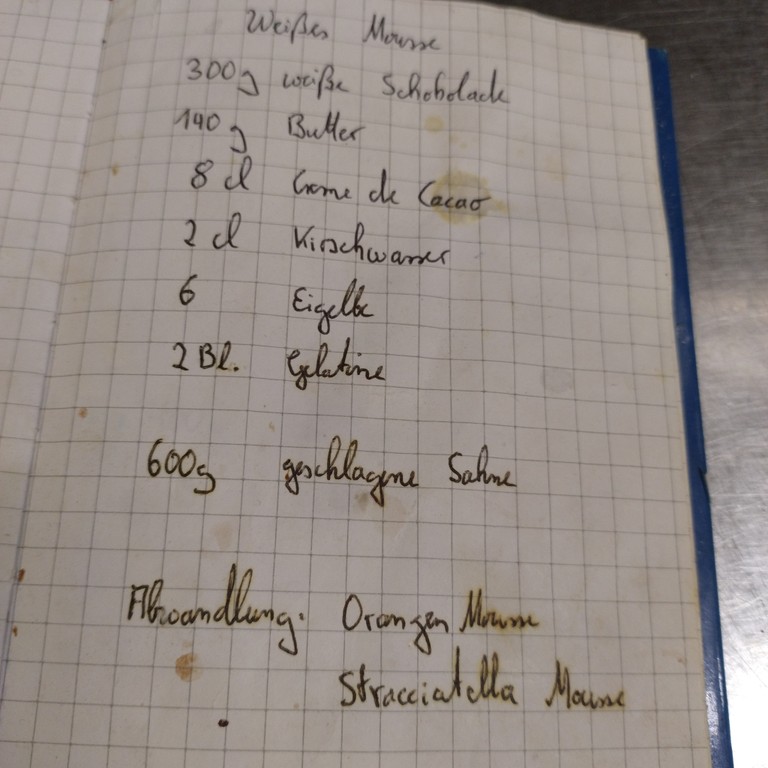 Weißes Mousse
300g weiße Schokolade
140 g Butter
8 cl Creme de Cacao
2 cl Kirschwasser
6 Eigelbe
2 Bl. Gelatine
600g geschlagene Sahne
Abwandlung: Orangen Mousse
Stracciatella Mousse